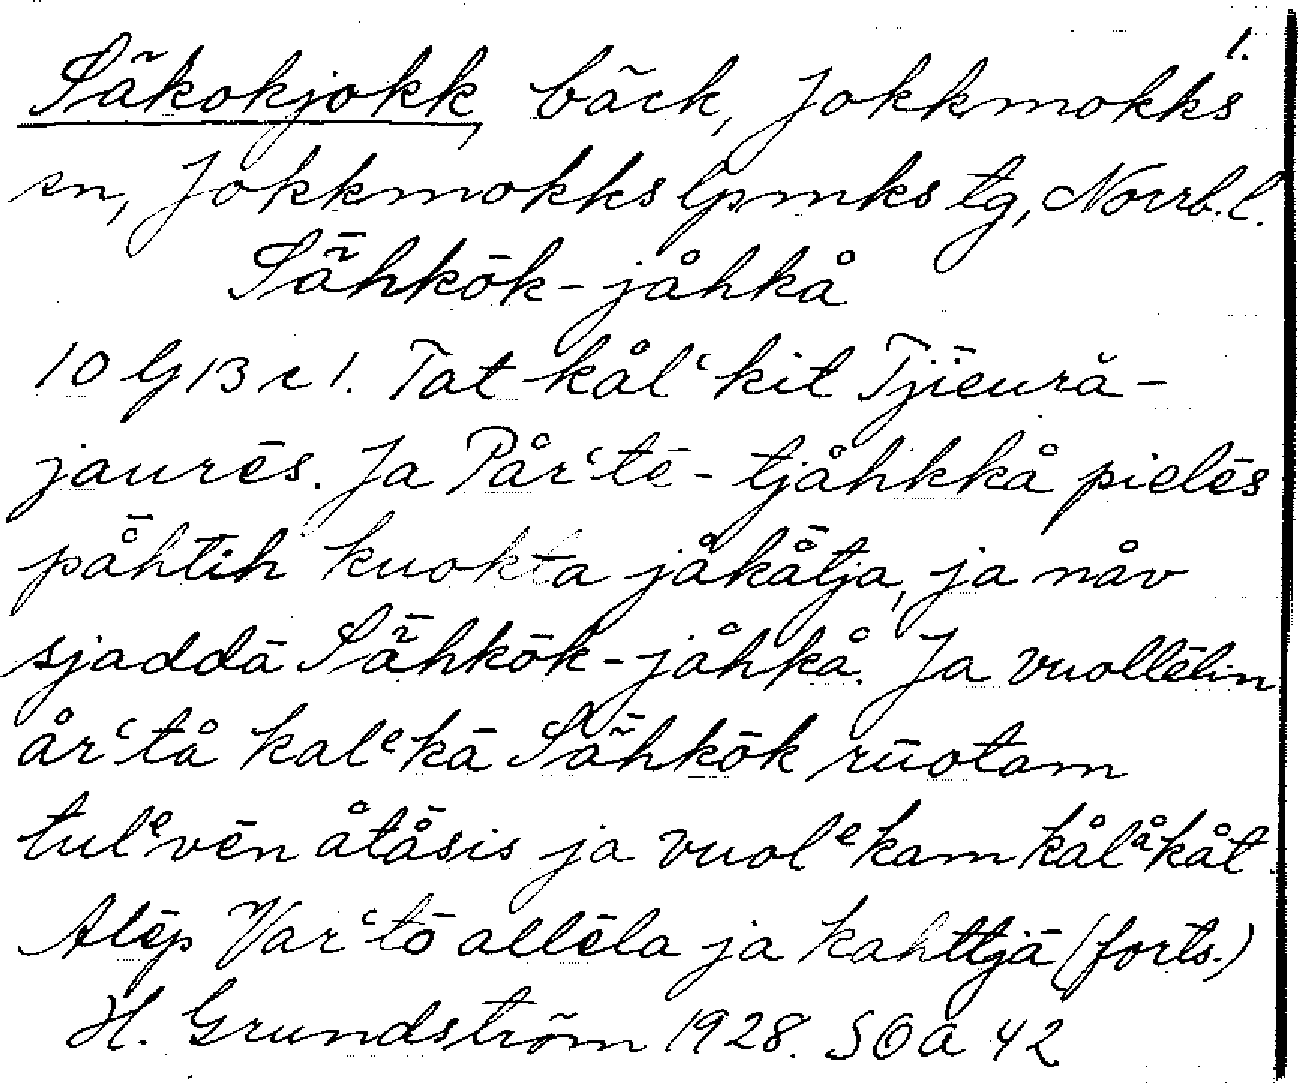 1.
Säkokjokk, bäck, Jokkmokks
sn, Jokkmokks lpmks tg, Norrb. l.
Sǟhkōk-jåhkå
10 G 13 c 1. Tat kålʿkit Tjīeură-
jaurēs. Ja Pårʿtē-tjåhkkå pielēs
på̄htīh kuokta jåkå̄tja, ja nåv
sjaddā Sǟhkōk-jåhkå. Ja vuollēlin
årʿtå kalᵉkā Sǟhkōk rūotam
tulᵉvēn åtå̄sis ja vuolᵉkam kålåkåt
Alēp Varʿtō allēla ja kahttjā (forts.)
H. Grundström 1928. SOA 42